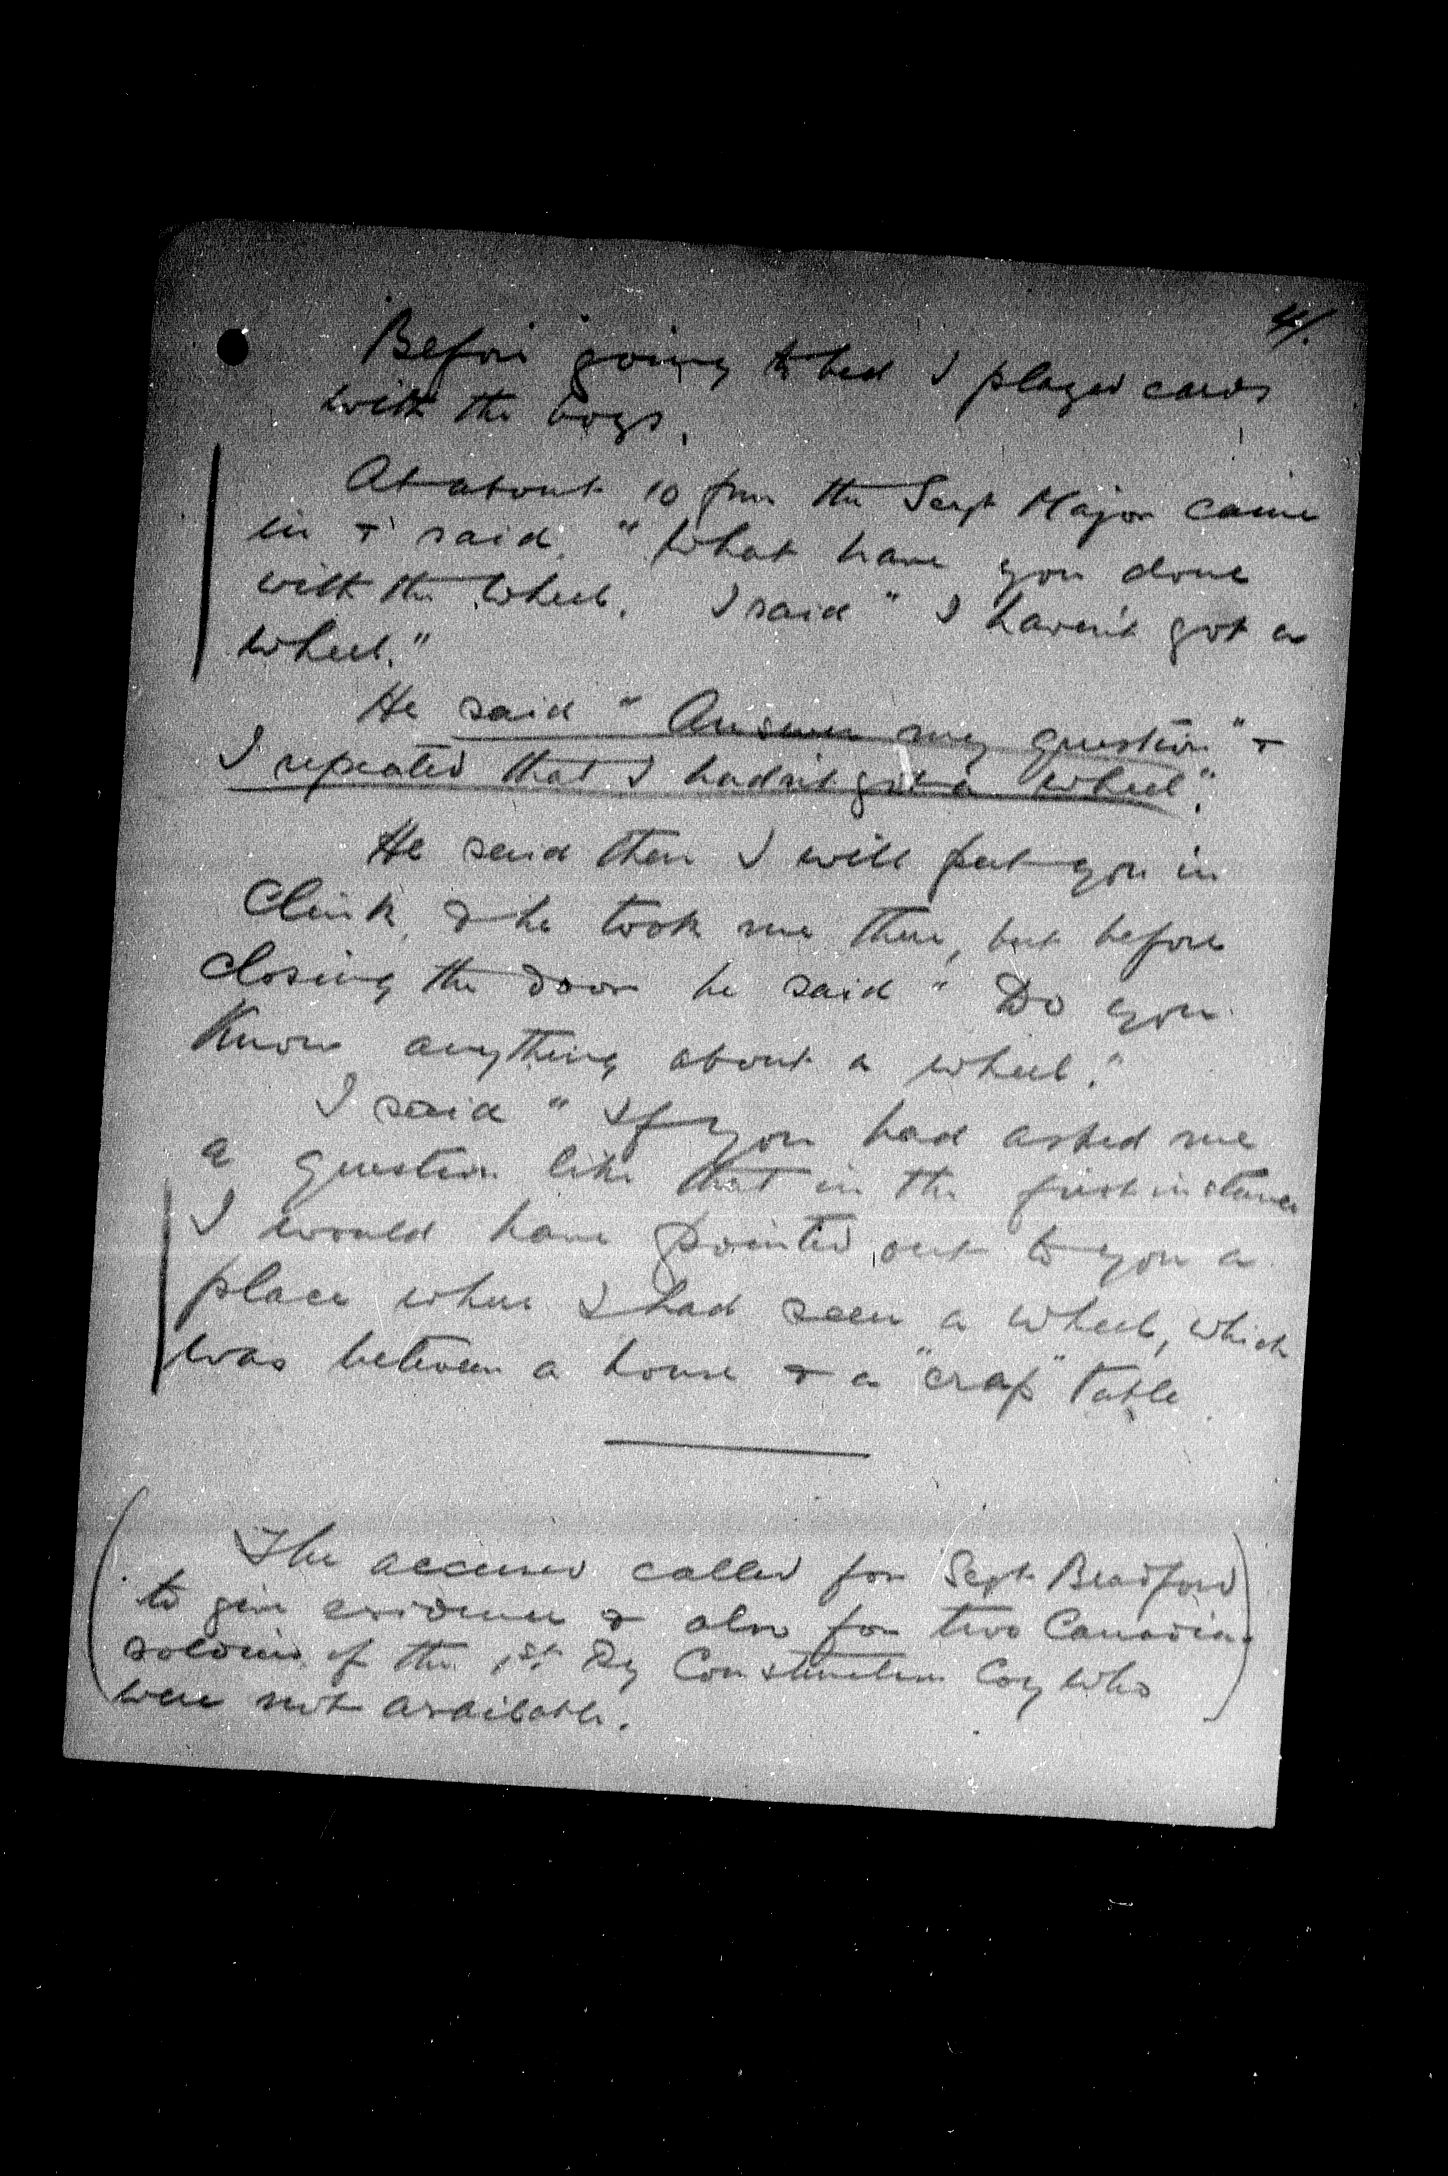 4/.
Before going to bed I played cards
with the boys.
At about 10 pm the Sergt Major came
in & said. "What have you done
with the wheel. I said "I haven't got a
wheel."
He said "Answer my question" &
I repeated that I hadn't got a wheel".
He said then I will put you in
Clink, & he took me there, but before
closing the door he said "Do you
know anything about a wheel."
I said "If you had asked me
a question like that in the first instance
I would have pointed out to you a
place where I had seen a wheel, which
was between a house & a "crap" table.
(The accused called for Sergt Bradford
to give evidence & also for two Canadian
soldiers of the 1st Ry Construction Coy who
were not available.)